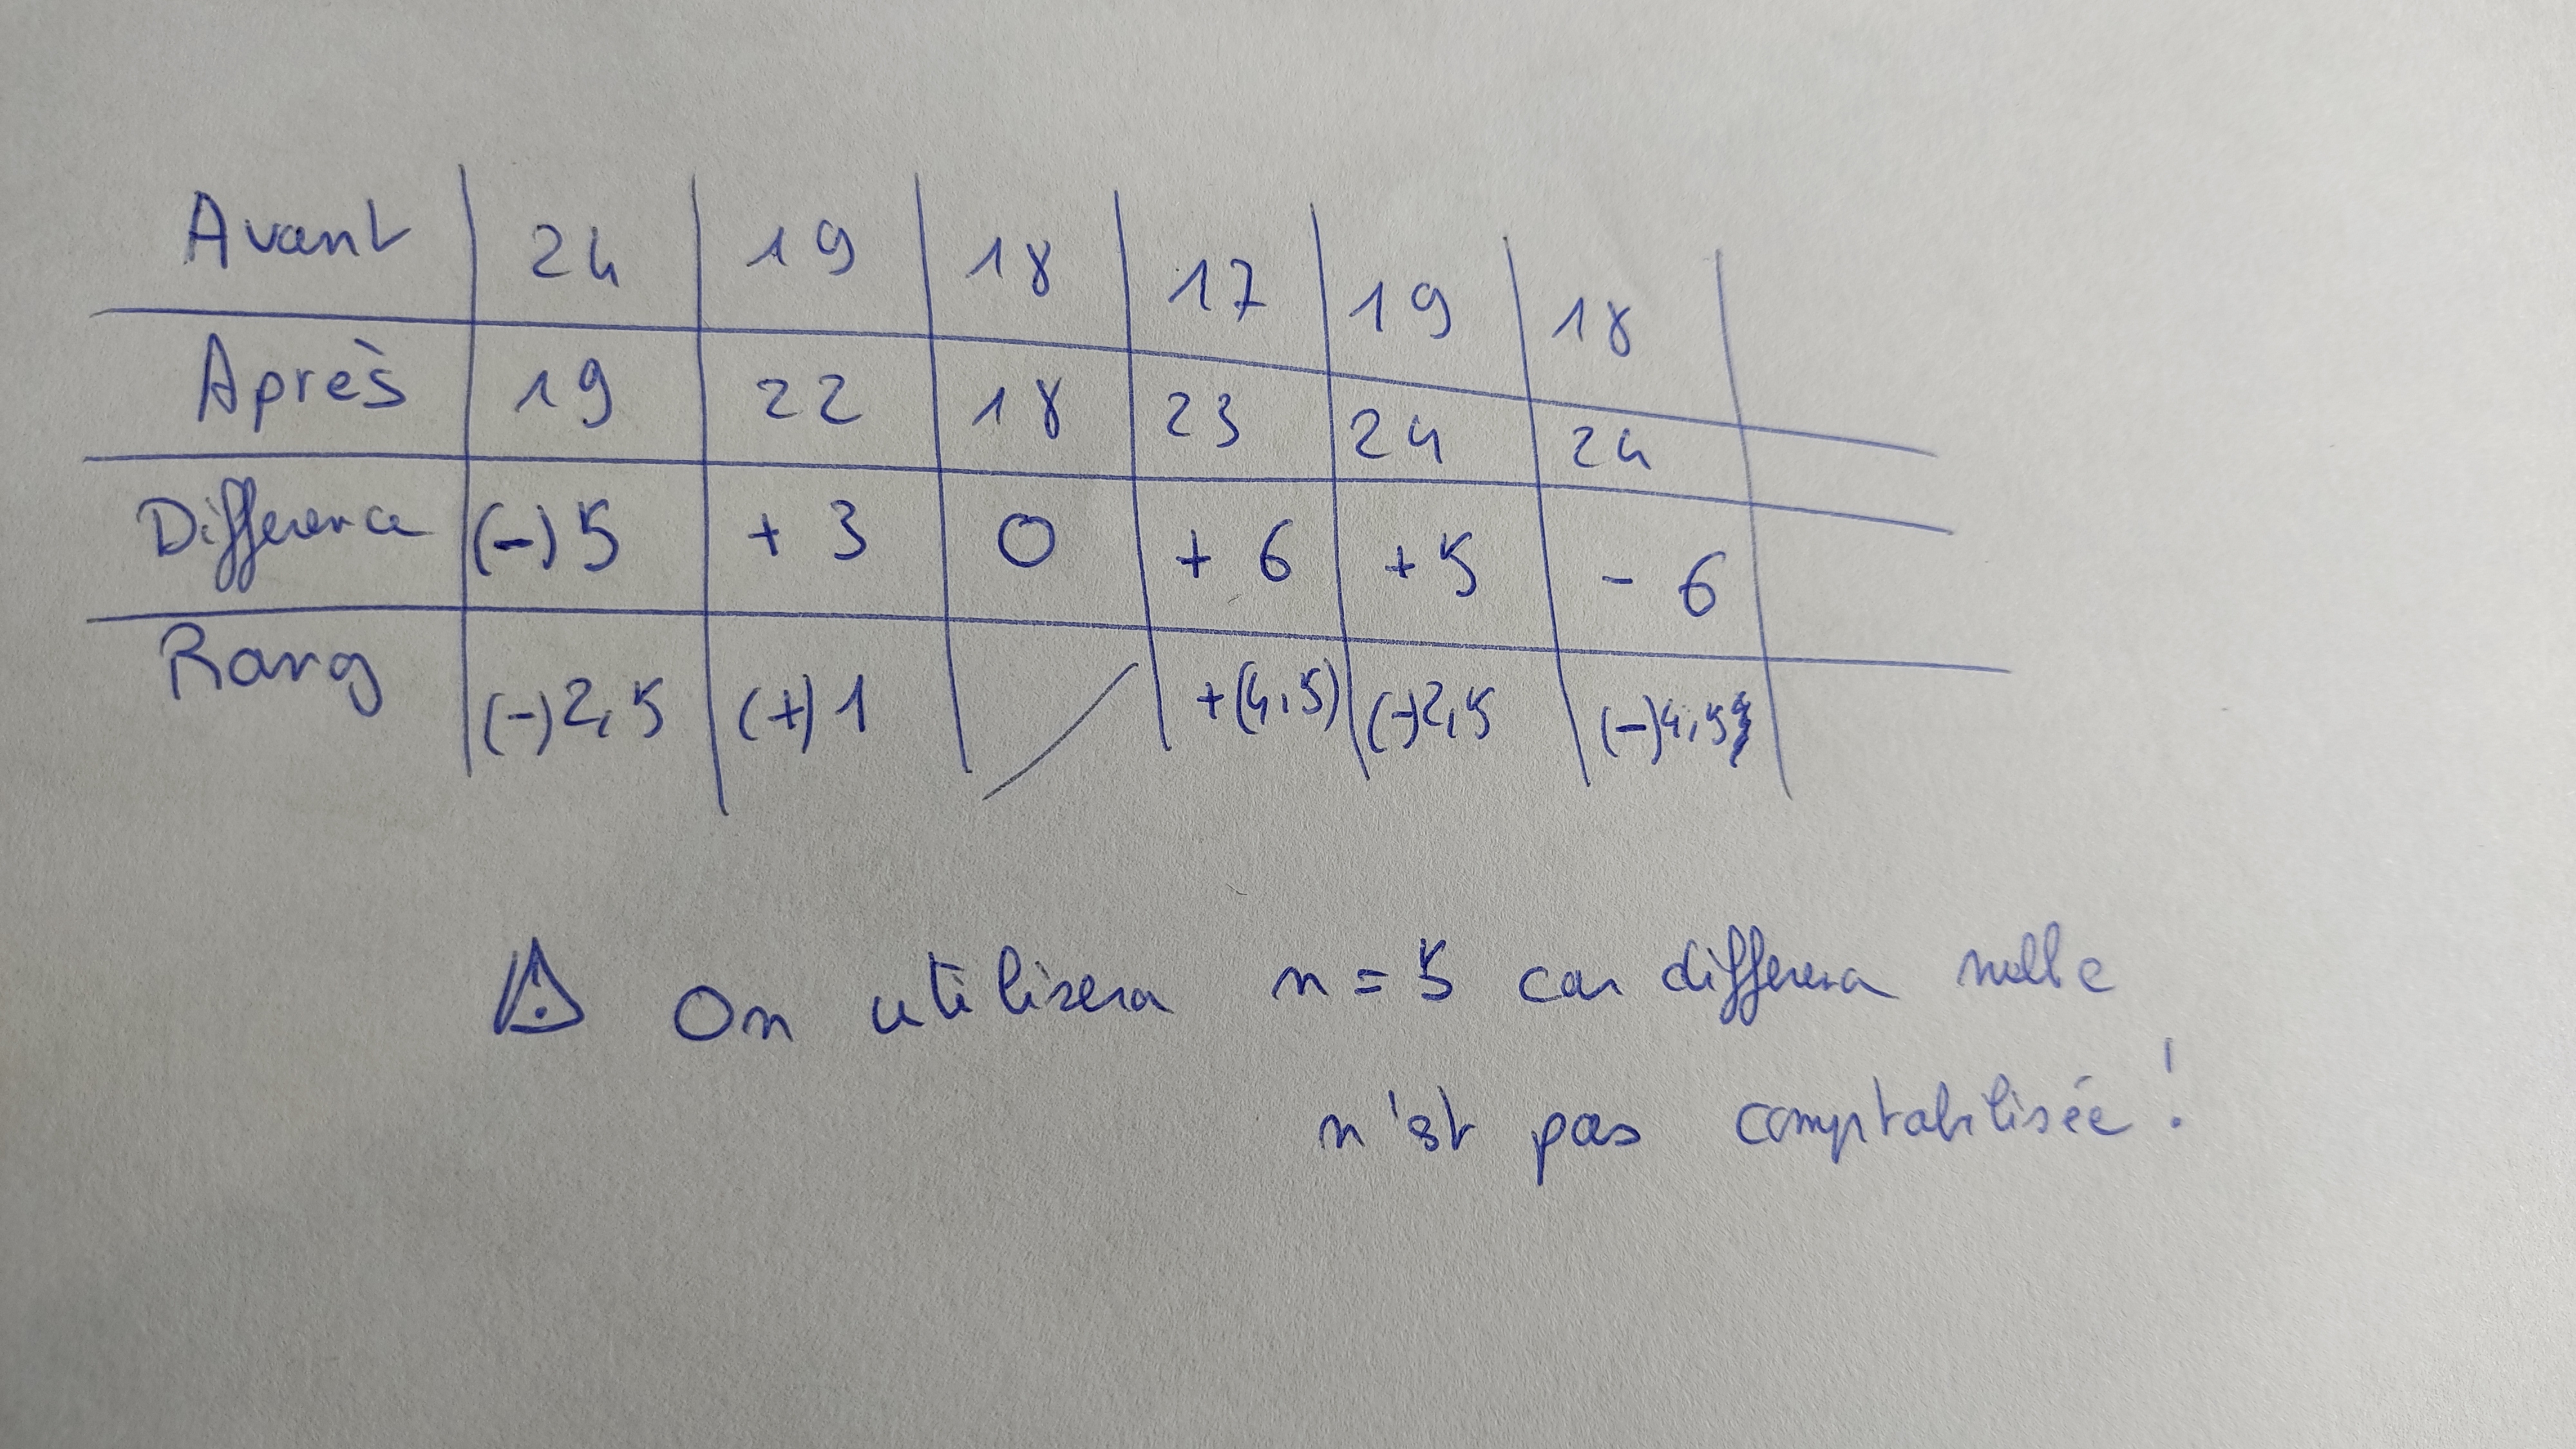 Avant 24 19 18 17 19 18
Après 19 22 18 23 24 24
Difference (-) 5 + 3 0 + 6 +5 - 6
Rang (-) 2,5 (+) 1 +(4,5) (-)2,5 (-)4,5
⚠ On utilisera n = 5 car differena nulle
n'est pas comptabilisée !